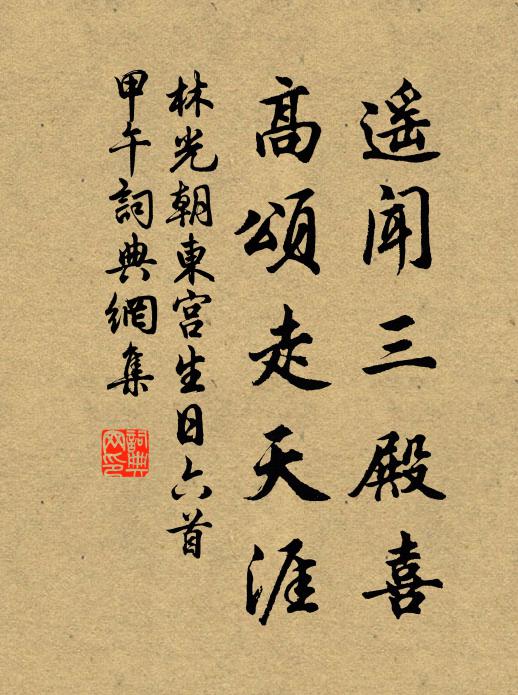 遥聞三殿喜
高頌走天涯
林光朝東宮生日六首
甲午詞典網集
詞典
网印